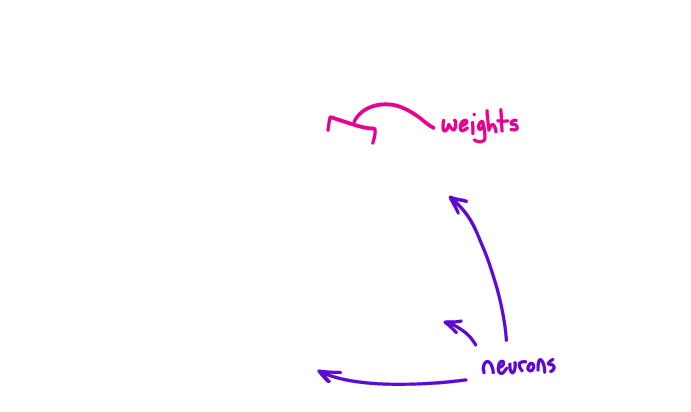 weights
neurons